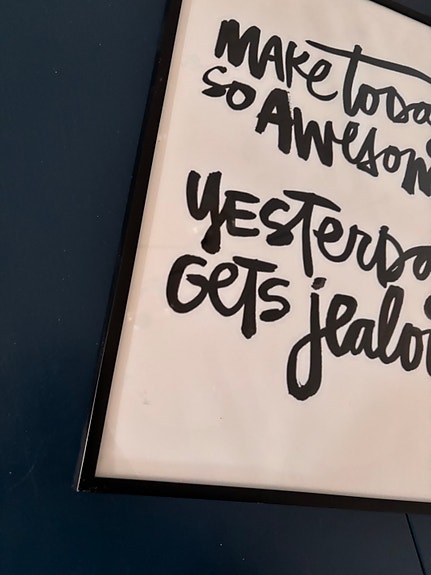 MAKE toda
so AWesom
YESTerda
GeTs jealou